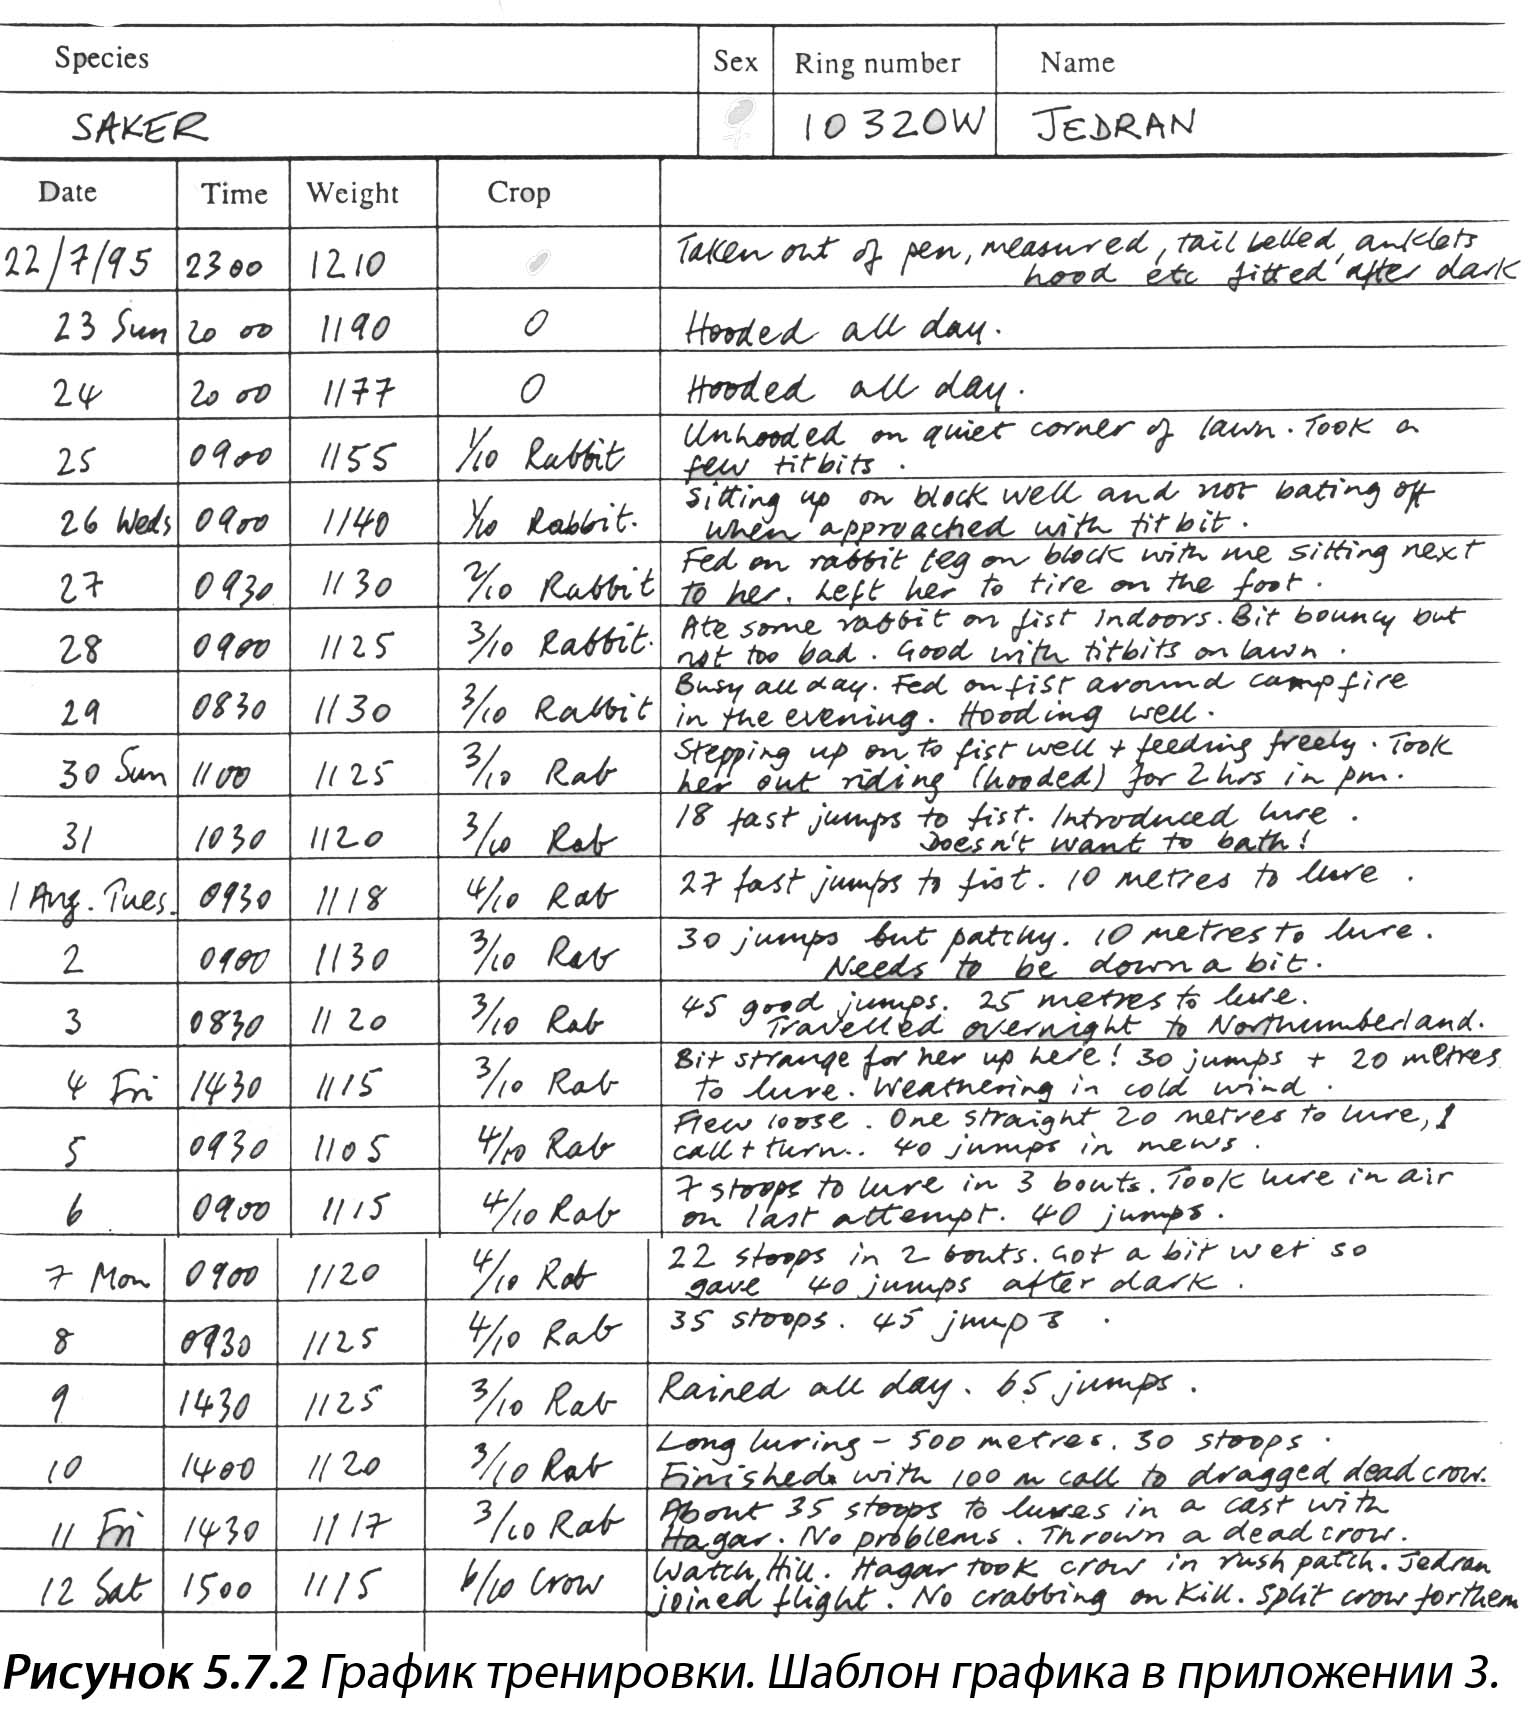 Species Sex Ring number Name
SAKER ♀ 10320W JEDRAN
Date Time Weight Crop
22/7/95 2300 1210 0 Taken out of pen, measured, tail belled, anklets
hood etc fitted after dark
23 Sun 2000 1190 0 Hooded all day.
24 2000 1177 0 Hooded all day.
25 0900 1155 1/10 Rabbit Unhooded on quiet corner of lawn. Took a
few titbits.
26 Weds 0900 1140 1/10 Rabbit. Sitting up on block well and not bating off
when approached with titbit.
27 0930 1130 2/10 Rabbit Fed on rabbit leg on block with me sitting next
to her. Left her to tire on the foot.
28 0900 1125 3/10 Rabbit. Ate some rabbit on fist indoors. Bit bouncy but
not too bad. Good with titbits on lawn.
29 0830 1130 3/10 Rabbit Busy all day. Fed on fist around campfire
in the evening. Hooding well.
30 Sun 1100 1125 3/10 Rab Stepping up on to fist well + feeding freely. Took
her out riding (hooded) for 2 hrs in pm.
31 1030 1120 3/10 Rab 18 fast jumps to fist. Introduced lure.
Doesn't want to bath!
1 Aug. Tues. 0930 1118 4/10 Rab 27 fast jumps to fist. 10 metres to lure.
2 0900 1130 3/10 Rab 30 jumps but patchy. 10 metres to lure.
Needs to be down a bit.
3 0830 1120 3/10 Rab 45 good jumps. 25 metres to lure.
Travelled overnight to Northumberland.
4 Fri 1430 1115 3/10 Rab Bit strange for her up here! 30 jumps + 20 metres
to lure. Weathering in cold wind.
5 0930 1105 4/10 Rab Flew loose. One straight 20 metres to lure, 1
call + turn.. 40 jumps in mews.
6 0900 1115 4/10 Rab 7 stoops to lure in 3 bouts. Took lure in air
on last attempt. 40 jumps.
7 Mon 0900 1120 4/10 Rab 22 stoops in 2 bouts. Got a bit wet so
gave 40 jumps after dark.
8 0930 1125 4/10 Rab 35 stoops. 45 jumps.
9 1430 1125 3/10 Rab Rained all day. 65 jumps.
10 1400 1120 3/10 Rab Long luring - 500 metres. 30 stoops.
Finished with 100 m call to dragged dead crow.
11 Fri 1430 1117 3/10 Rab About 35 stoops to lures in a cast with
Hagar. No problems. Thrown a dead crow.
12 Sat 1500 1115 6/10 Crow Watch Hill. Hagar took crow in rush patch. Jedran
joined flight. No crabbing on kill. Split crow for them
Рисунок 5.7.2 График тренировки. Шаблон графика в приложении 3.